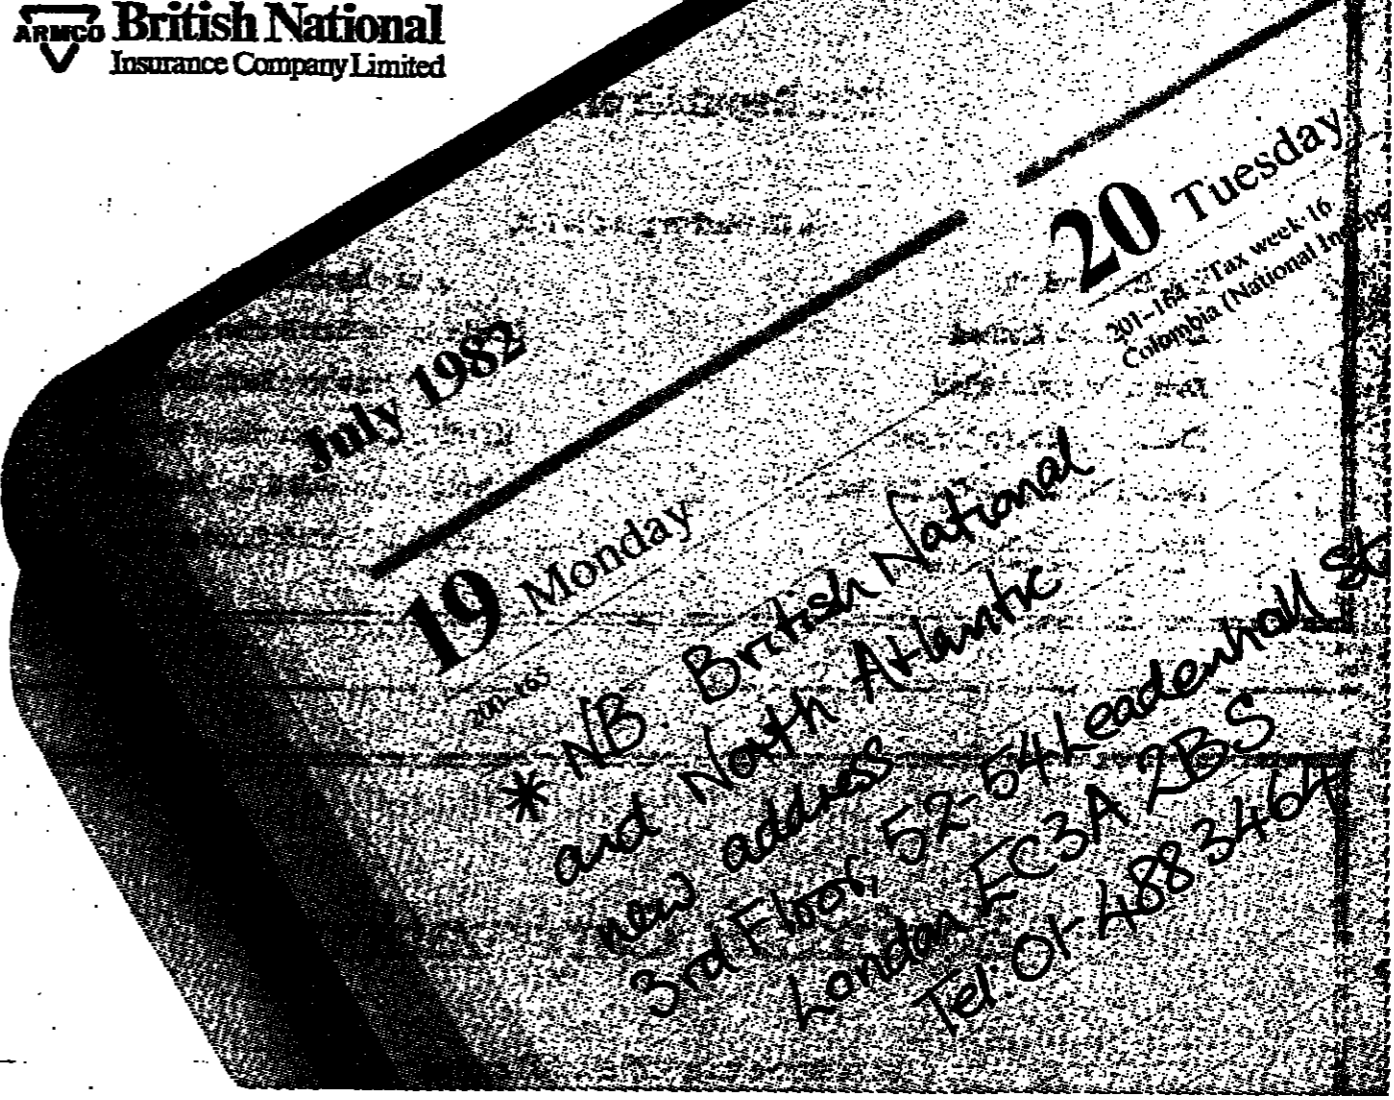 ARMCO
British National
Insurance Company Limited
July 1982
19 Monday
200-165
20 Tuesday
201-164 Tax week 16
Colombia (National
* NB British National
and North Atlantic
new address
3rd Floor, 52-54 Leadenhall St
London EC3A 2BS
Tel: 01-488 3464